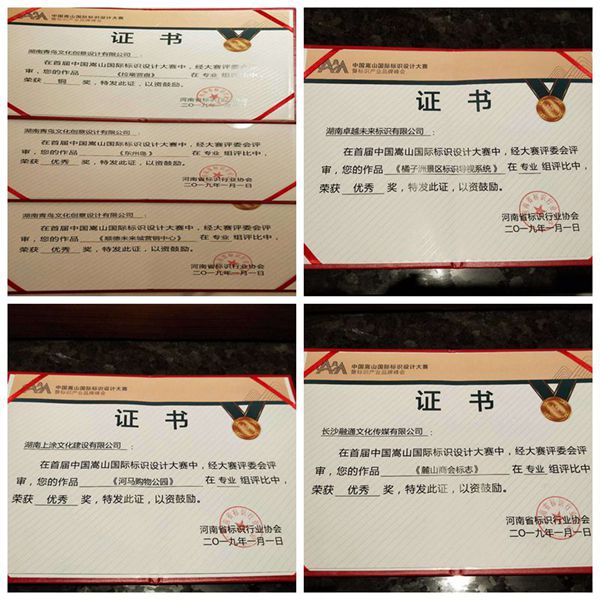 中国嵩山国际标识设计大赛
暨标识产业品牌峰会
证书
湖南青鸟文化创意设计有限公司：
在首届中国嵩山国际标识设计大赛中，经大赛评委会评
审，您的作品 《拉斐营盘》 在 专业 组评比中，
荣获 铜 奖，特发此证，以资鼓励。
河南省标识行业协会
二〇一九年一月一日
湖南青鸟文化创意设计有限公司：
在首届中国嵩山国际标识设计大赛中，经大赛评委会评
审，您的作品 《东州岛》 在 专业 组评比中，
荣获 优秀 奖，特发此证，以资鼓励。
河南省标识行业协会
二〇一九年一月一日
湖南青鸟文化创意设计有限公司：
在首届中国嵩山国际标识设计大赛中，经大赛评委会评
审，您的作品 《顺德未来城营销中心》 在 专业 组评比中，
荣获 优秀 奖，特发此证，以资鼓励。
河南省标识行业协会
二〇一九年一月一日
中国嵩山国际标识设计大赛
暨标识产业品牌峰会
证书
湖南卓越未来标识有限公司：
在首届中国嵩山国际标识设计大赛中，经大赛评委会评
审，您的作品 《橘子洲景区标识导视系统》 在 专业 组评比中，
荣获 优秀 奖，特发此证，以资鼓励。
河南省标识行业协会
二〇一九年一月一日
中国嵩山国际标识设计大赛
暨标识产业品牌峰会
证书
湖南上涂文化建设有限公司：
在首届中国嵩山国际标识设计大赛中，经大赛评委会评
审，您的作品 《河马购物公园》 在 专业 组评比中，
荣获 优秀 奖，特发此证，以资鼓励。
河南省标识行业协会
二〇一九年一月一日
中国嵩山国际标识设计大赛
暨标识产业品牌峰会
证书
长沙融通文化传媒有限公司：
在首届中国嵩山国际标识设计大赛中，经大赛评委会评
审，您的作品 《麓山商会标志》 在 专业 组评比中，
荣获 优秀 奖，特发此证，以资鼓励。
河南省标识行业协会
二〇一九年一月一日